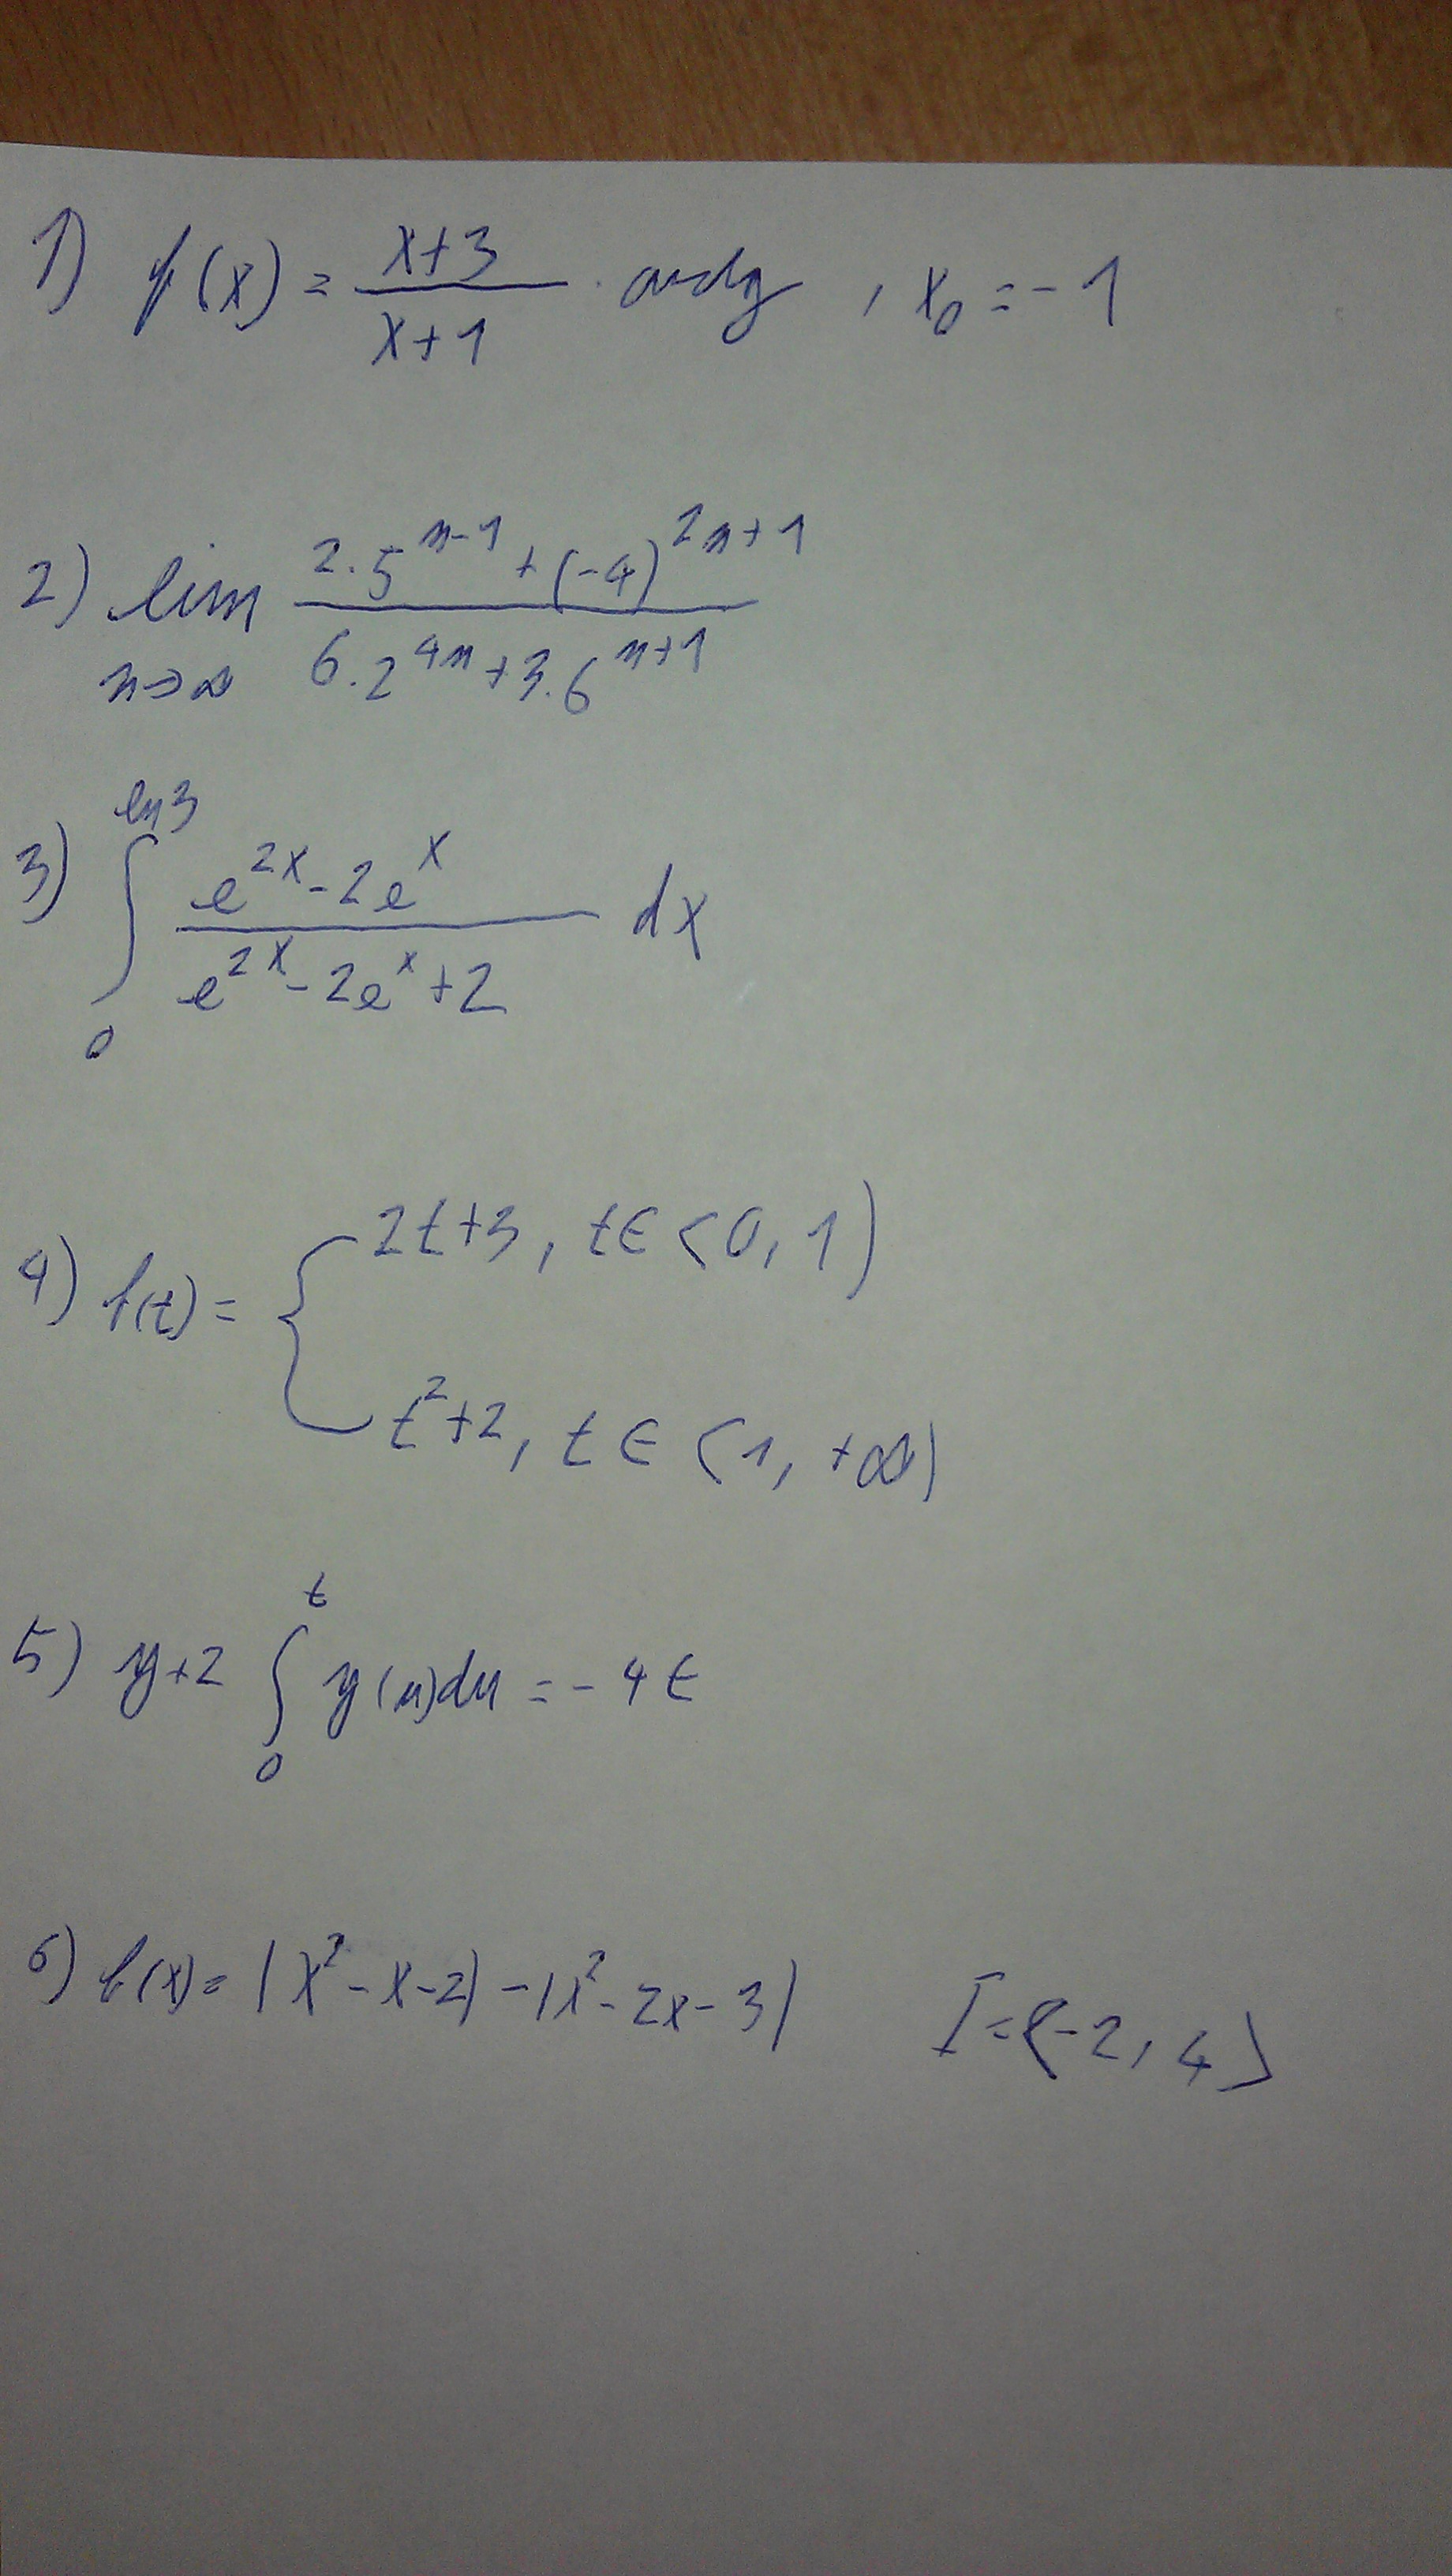 1) f(x) = (x+3)/(x+1) · arctg , x₀ = -1
2) lim n→∞ (2·5^(n-1) + (-4)^(2n+1))/(6·2^(4n) + 3·6^(n+1))
3) ∫₀^(ln 3) (e^(2x) - 2e^x)/(e^(2x) - 2e^x + 2) dx
4) f(t) = { 2t+3, t∈<0, 1)
t²+2, t∈<1, +∞)
5) y+2 ∫₀^t y(u)du = -4t
6) f(x) = |x²-x-2| - |x²-2x-3| I=<-2, 4>